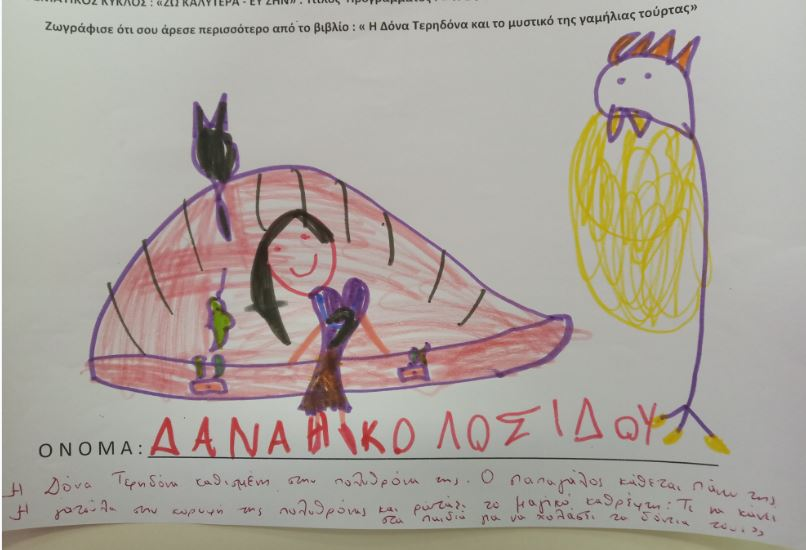 ΜΑΤΙΚΟΣ ΚΥΚΛΟΣ : «ΖΩ ΚΑΛΥΤΕΡΑ - ΕΥ ΖΗΝ» :
Ζωγράφισε ότι σου άρεσε περισσότερο από το βιβλίο : « Η Δόνα Τερηδόνα και το μυστικό της γαμήλιας τούρτας»
ΟΝΟΜΑ: ΔΑΝΑΗ ΚΟΛΟΣΙΔΟΥ
Η Δόνα Τερηδόνα καθισμένη στην πολυθρόνα της. Ο παπαγάλος κάθεται πάνω της
Η γατούλα στην κορυφή της πολυθρόνας και ρωτάει το μαγικό καθρέφτη: Τι να κάνει
στα παιδιά για να χαλάσει τα δόντια τους;»